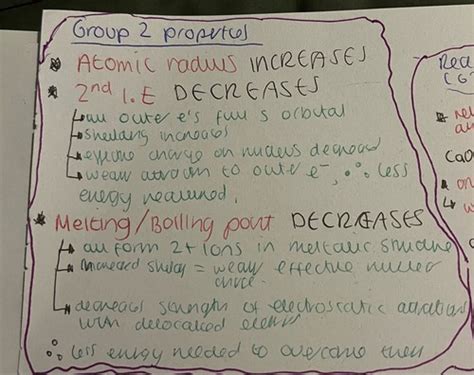 Group 2 properties
* Atomic radius INCREASES
* 2nd I.E DECREASES
all outer e's full s orbital
shielding increases
effective charge on nucleus decreased
weaker attraction to outer e⁻, ∴ less
energy required.
* Melting/Boiling point DECREASES
all form 2+ ions in metallic structure
increased = weaker effective nuclear
decreases strength of electrostatic attractions
with delocalised
∴ less energy needed to overcome them
Rea
(G
are
CaO
on